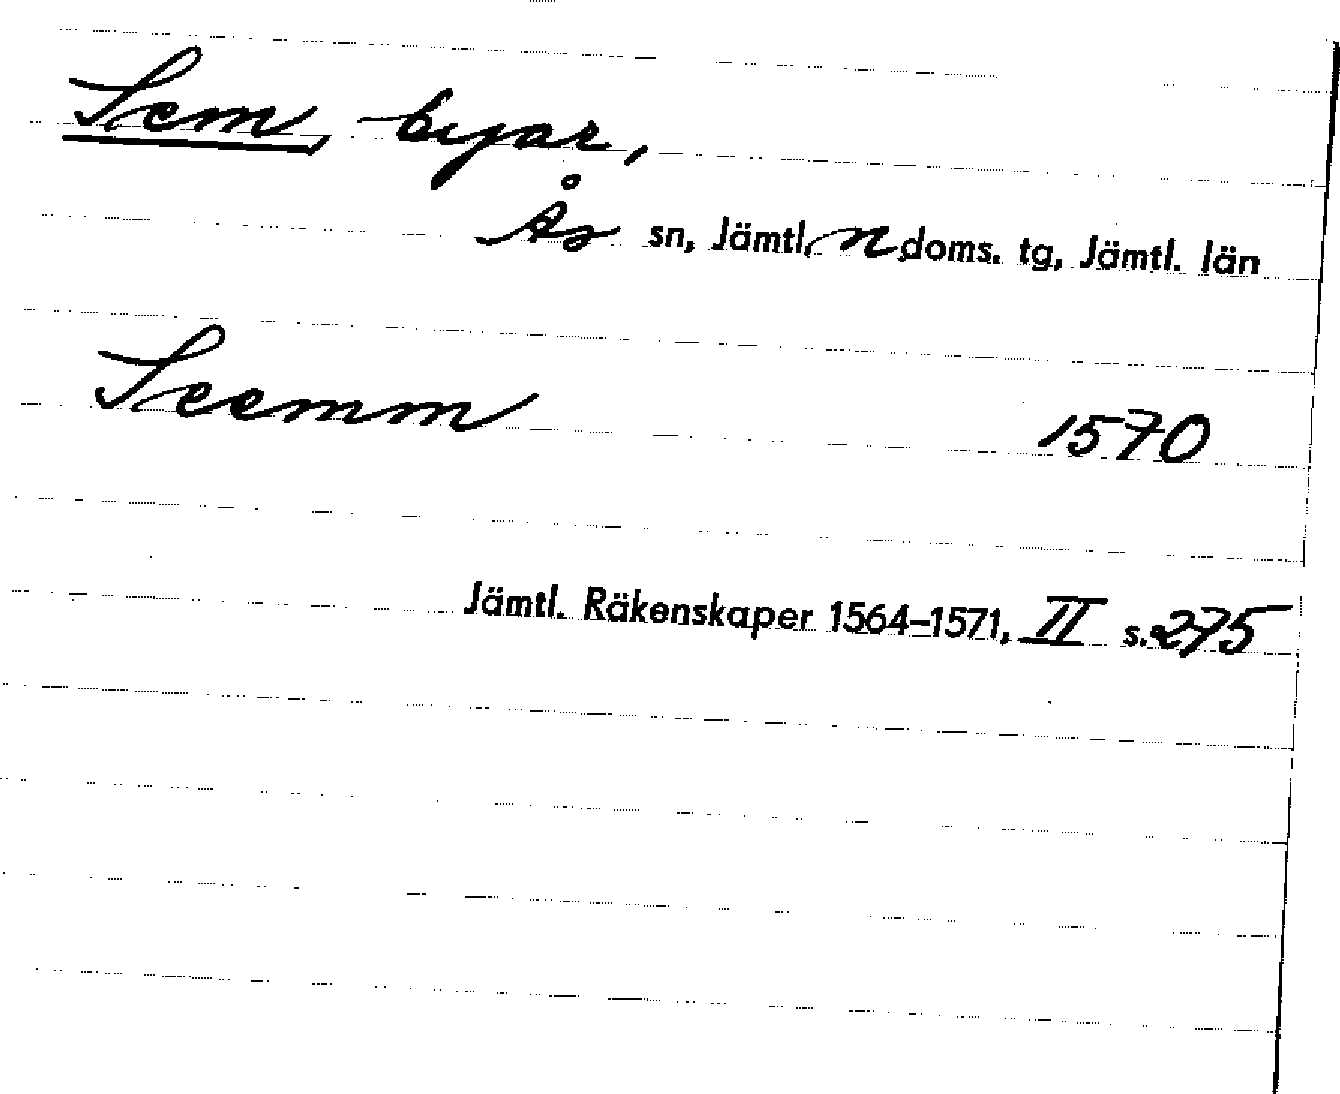 Sem, byar,
Ås sn, Jämtl. n doms. tg, Jämtl. län
Seemm 1570
Jämtl. Räkenskaper 1564–1571, II s. 275